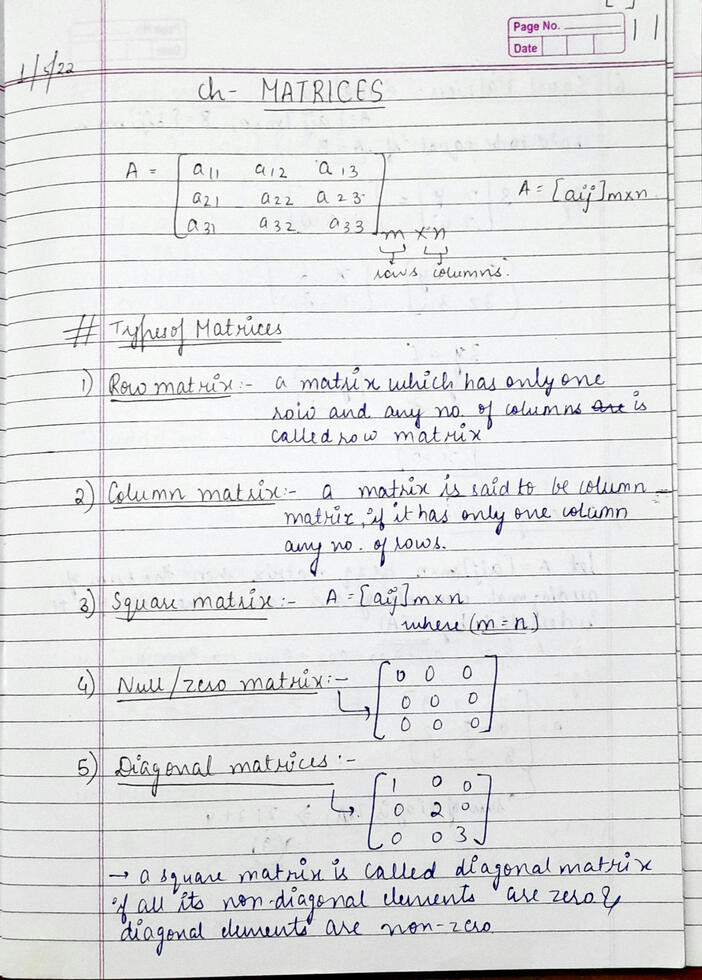 Page No. 11
Date
1/5/22
Ch- MATRICES
A = [ a11 a12 a13
a21 a22 a23
a31 a32 a33 ] m × n
A = [aij]m×n
rows columns.
# Types of Matrices
1) Row matrix:- a matrix which has only one
row and any no. of columns are is
called row matrix
2) Column matrix:- a matrix is said to be column
matrix, if it has only one column
any no. of rows.
3) Square matrix:- A = [aij]m×n
where (m=n)
4) Null/zero matrix:-
[ 0 0 0
0 0 0
0 0 0 ]
5) Diagonal matrices:-
[ 1 0 0
0 2 0
0 0 3 ]
→ a square matrix is called diagonal matrix
if all its non-diagonal elements are zero &
diagonal elements are non-zero.